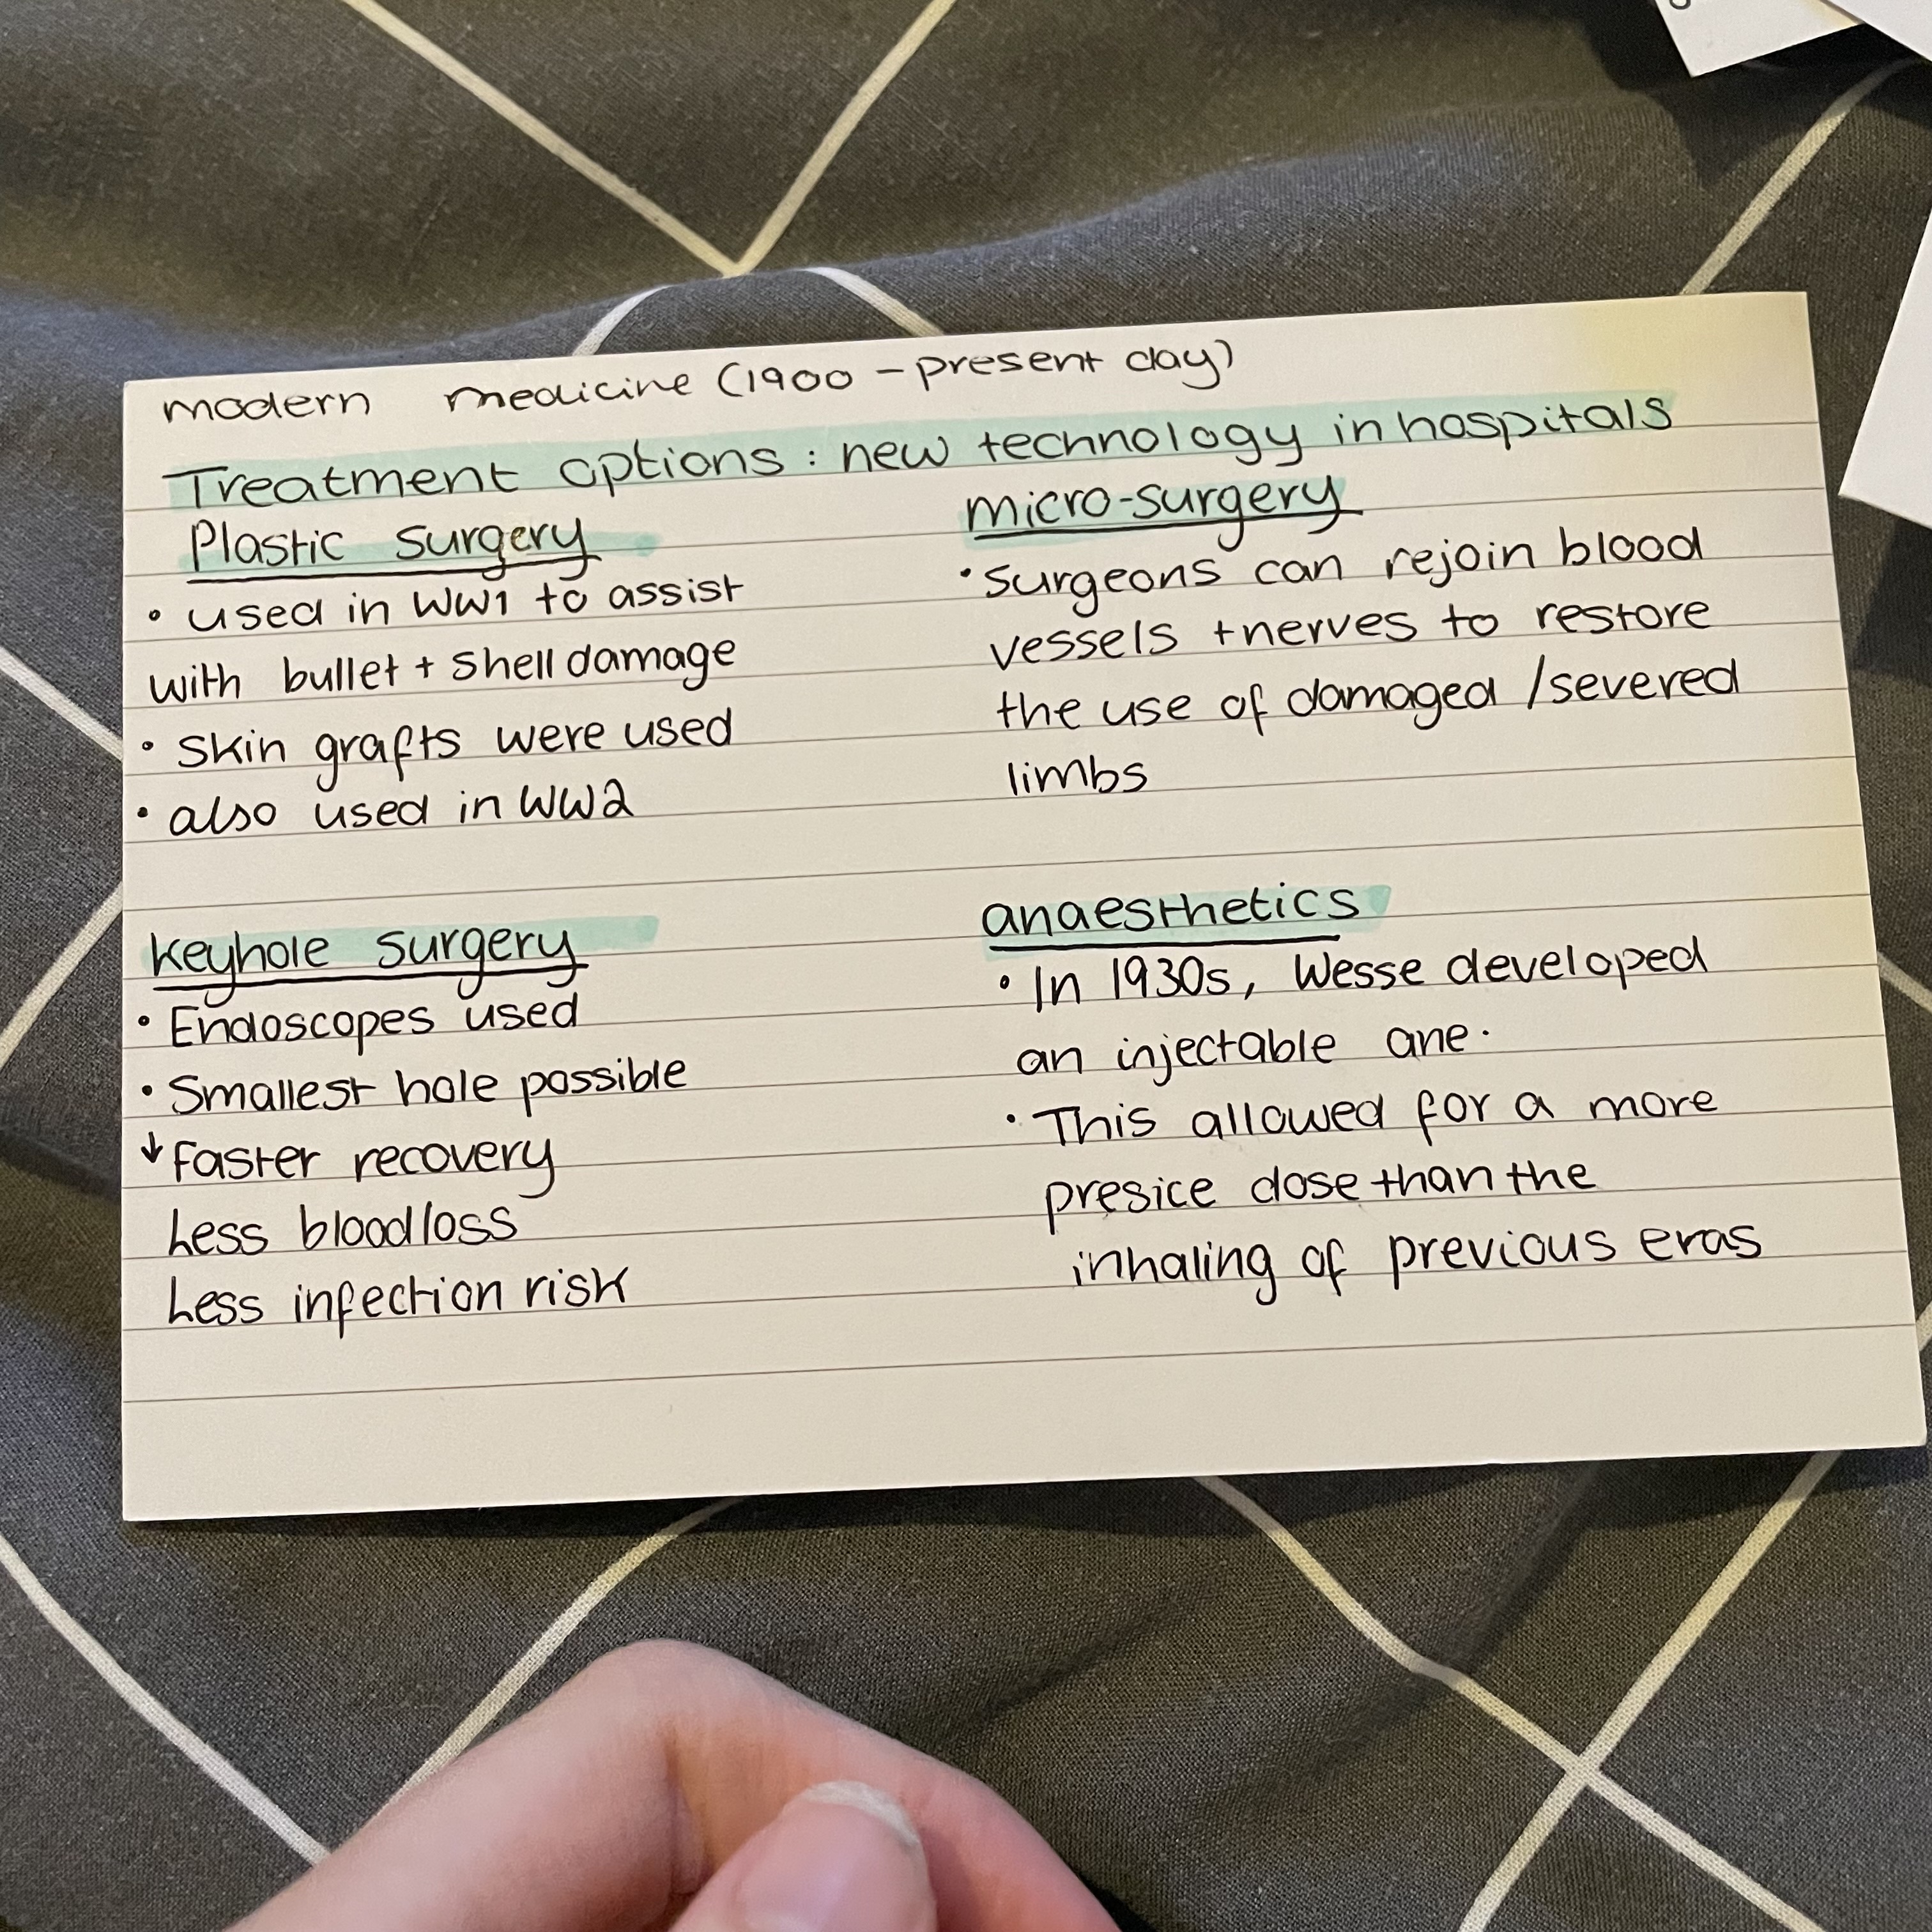 modern medicine (1900 - present day)
Treatment options : new technology in hospitals
Plastic surgery
• used in WW1 to assist
with bullet + shell damage
• skin grafts were used
• also used in WW2
micro-surgery
• surgeons can rejoin blood
vessels + nerves to restore
the use of damaged / severed
limbs
keyhole surgery
• Endoscopes used
• Smallest hole possible
↓ faster recovery
Less blood loss
Less infection risk
anaesthetics
• In 1930s, Wesse developed
an injectable ane.
• This allowed for a more
presice dose than the
inhaling of previous eras